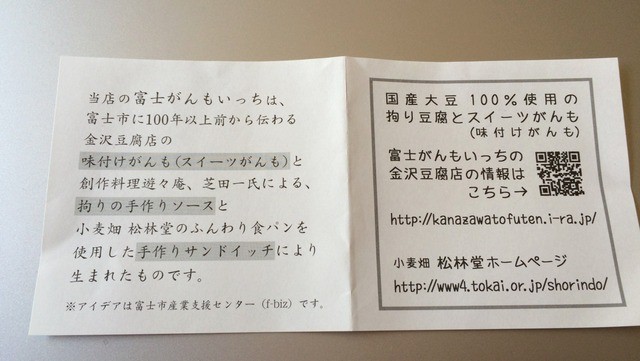 当店の富士がんもいっちは、
富士市に100年以上前から伝わる
金沢豆腐店の
味付けがんも(スイーツがんも)と
創作料理遊々庵、芝田一氏による、
拘りの手作りソースと
小麦畑 松林堂のふんわり食パンを
使用した手作りサンドイッチにより
生まれたものです。
※アイデアは富士市産業支援センター(f-biz)です。
国産大豆100%使用の
拘り豆腐とスイーツがんも
(味付けがんも)
富士がんもいっちの
金沢豆腐店の情報は
こちら→
http://kanazawatofuten.i-ra.jp/
小麦畑 松林堂ホームページ
http://www4.tokai.or.jp/shorindo/